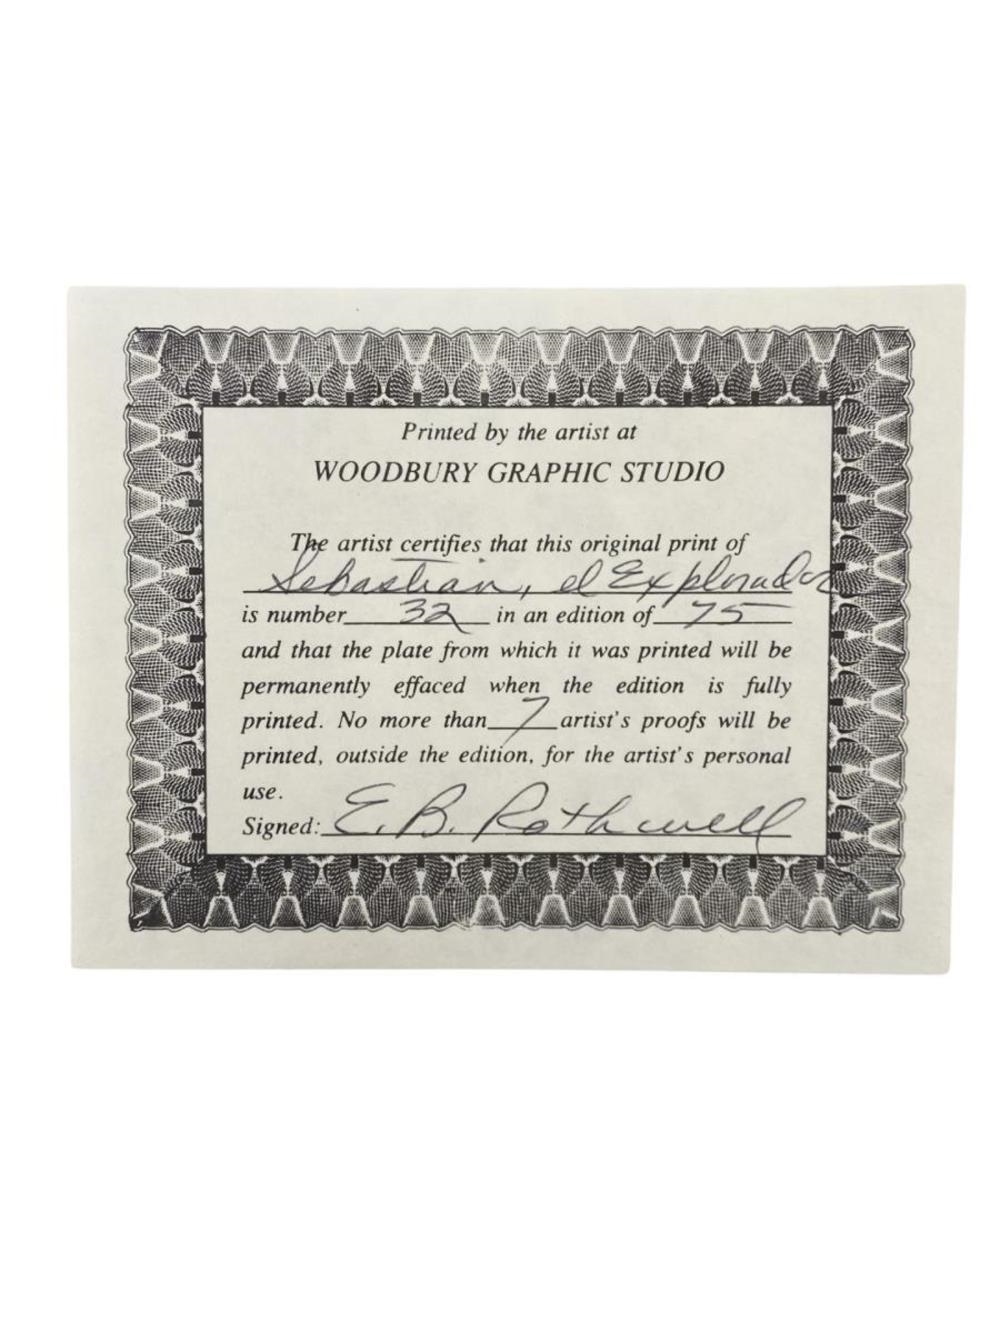 Printed by the artist at
WOODBURY GRAPHIC STUDIO
The artist certifies that this original print of
Sebastian, el Explorador
is number 32 in an edition of 75
and that the plate from which it was printed will be
permanently effaced when the edition is fully
printed. No more than 7 artist's proofs will be
printed, outside the edition, for the artist's personal
use.
Signed: E. B. Rothwell